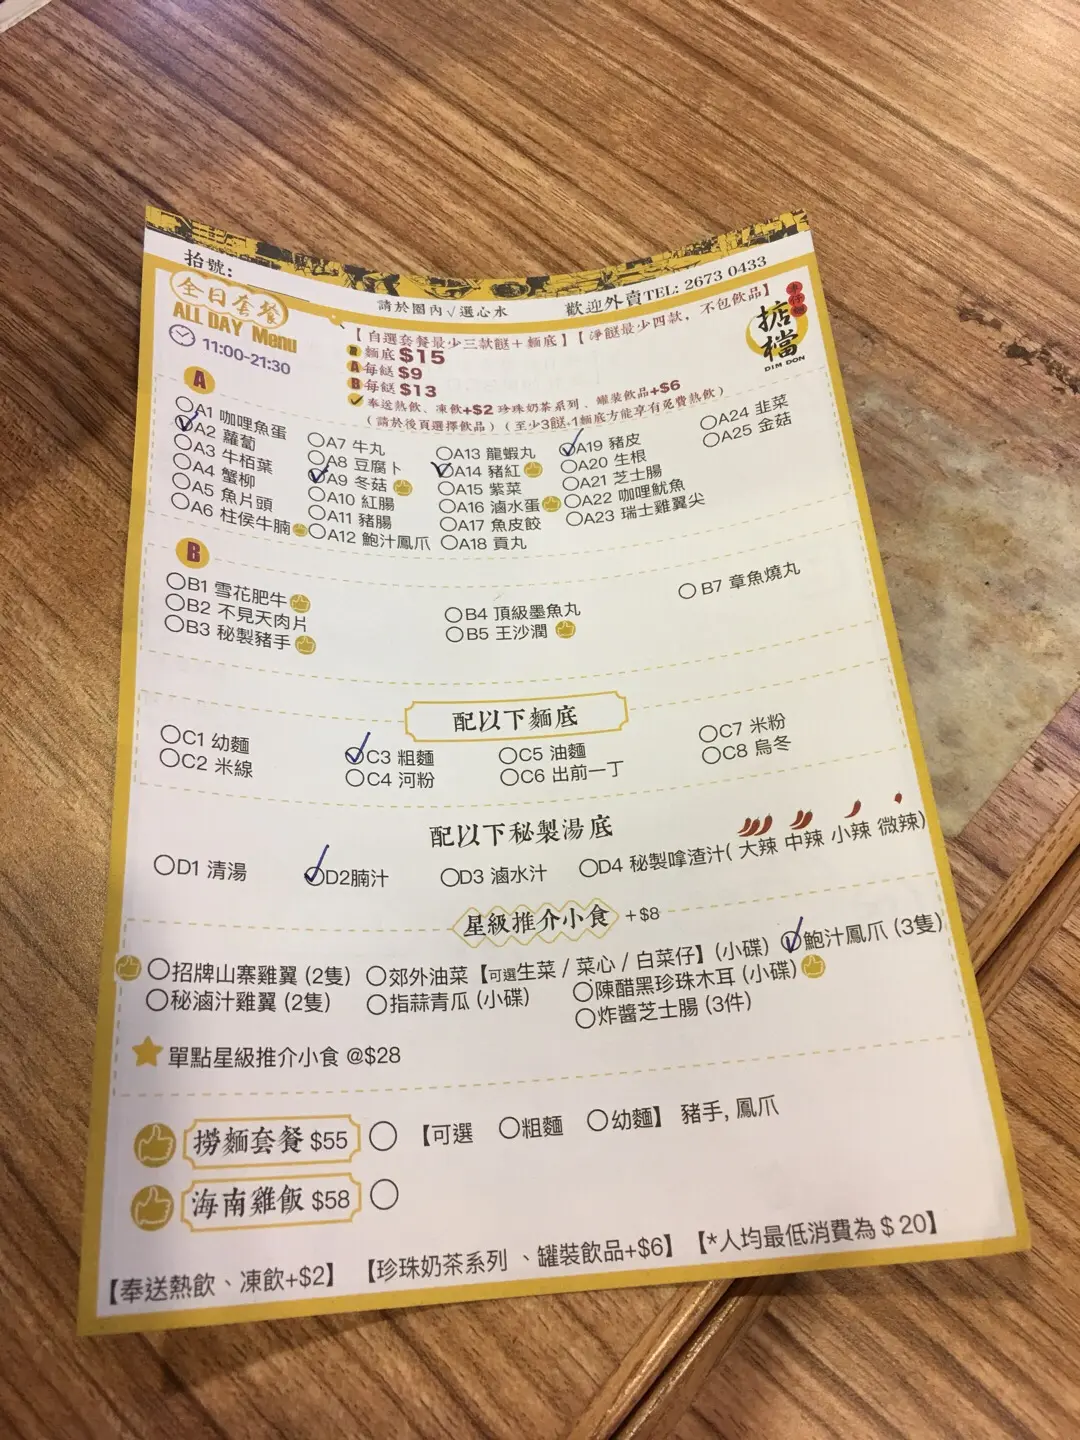 抬號:
請於圈內√選心水
歡迎外賣TEL: 2673 0433
全日套餐
ALL DAY Menu
11:00-21:30
【自選套餐最少三款餸+麵底】【淨餸最少四款，不包飲品】
麵底 $15
A 每餸 $9
B 每餸 $13
奉送熱飲、凍飲+$2 珍珠奶茶系列、罐裝飲品+$6
(請於後頁選擇飲品) (至少3餸+1麵底方能享有免費熱飲)
車仔麵
掂檔
DIM DON
A
A1 咖哩魚蛋
A2 蘿蔔
A3 牛栢葉
A4 蟹柳
A5 魚片頭
A6 柱侯牛腩
A7 牛丸
A8 豆腐卜
A9 冬菇
A10 紅腸
A11 豬腸
A12 鮑汁鳳爪
A13 龍蝦丸
A14 豬紅
A15 紫菜
A16 滷水蛋
A17 魚皮餃
A18 貢丸
A19 豬皮
A20 生根
A21 芝士腸
A22 咖哩魷魚
A23 瑞士雞翼尖
A24 韭菜
A25 金菇
B
B1 雪花肥牛
B2 不見天肉片
B3 秘製豬手
B4 頂級墨魚丸
B5 王沙潤
B7 章魚燒丸
配以下麵底
C1 幼麵
C2 米線
C3 粗麵
C4 河粉
C5 油麵
C6 出前一丁
C7 米粉
C8 烏冬
配以下秘製湯底
D1 清湯
D2腩汁
D3 滷水汁
D4 秘製嗱渣汁( 大辣 中辣 小辣 微辣)
星級推介小食 +$8
招牌山寨雞翼 (2隻)
郊外油菜【可選生菜 / 菜心 / 白菜仔】(小碟)
鮑汁鳳爪 (3隻)
秘滷汁雞翼 (2隻)
指蒜青瓜 (小碟)
陳醋黑珍珠木耳 (小碟)
炸醬芝士腸 (3件)
單點星級推介小食 @$28
撈麵套餐 $55
【可選 粗麵 幼麵】 豬手, 鳳爪
海南雞飯 $58
【奉送熱飲、凍飲+$2】 【珍珠奶茶系列 、罐裝飲品+$6】 【*人均最低消費為 $ 20】